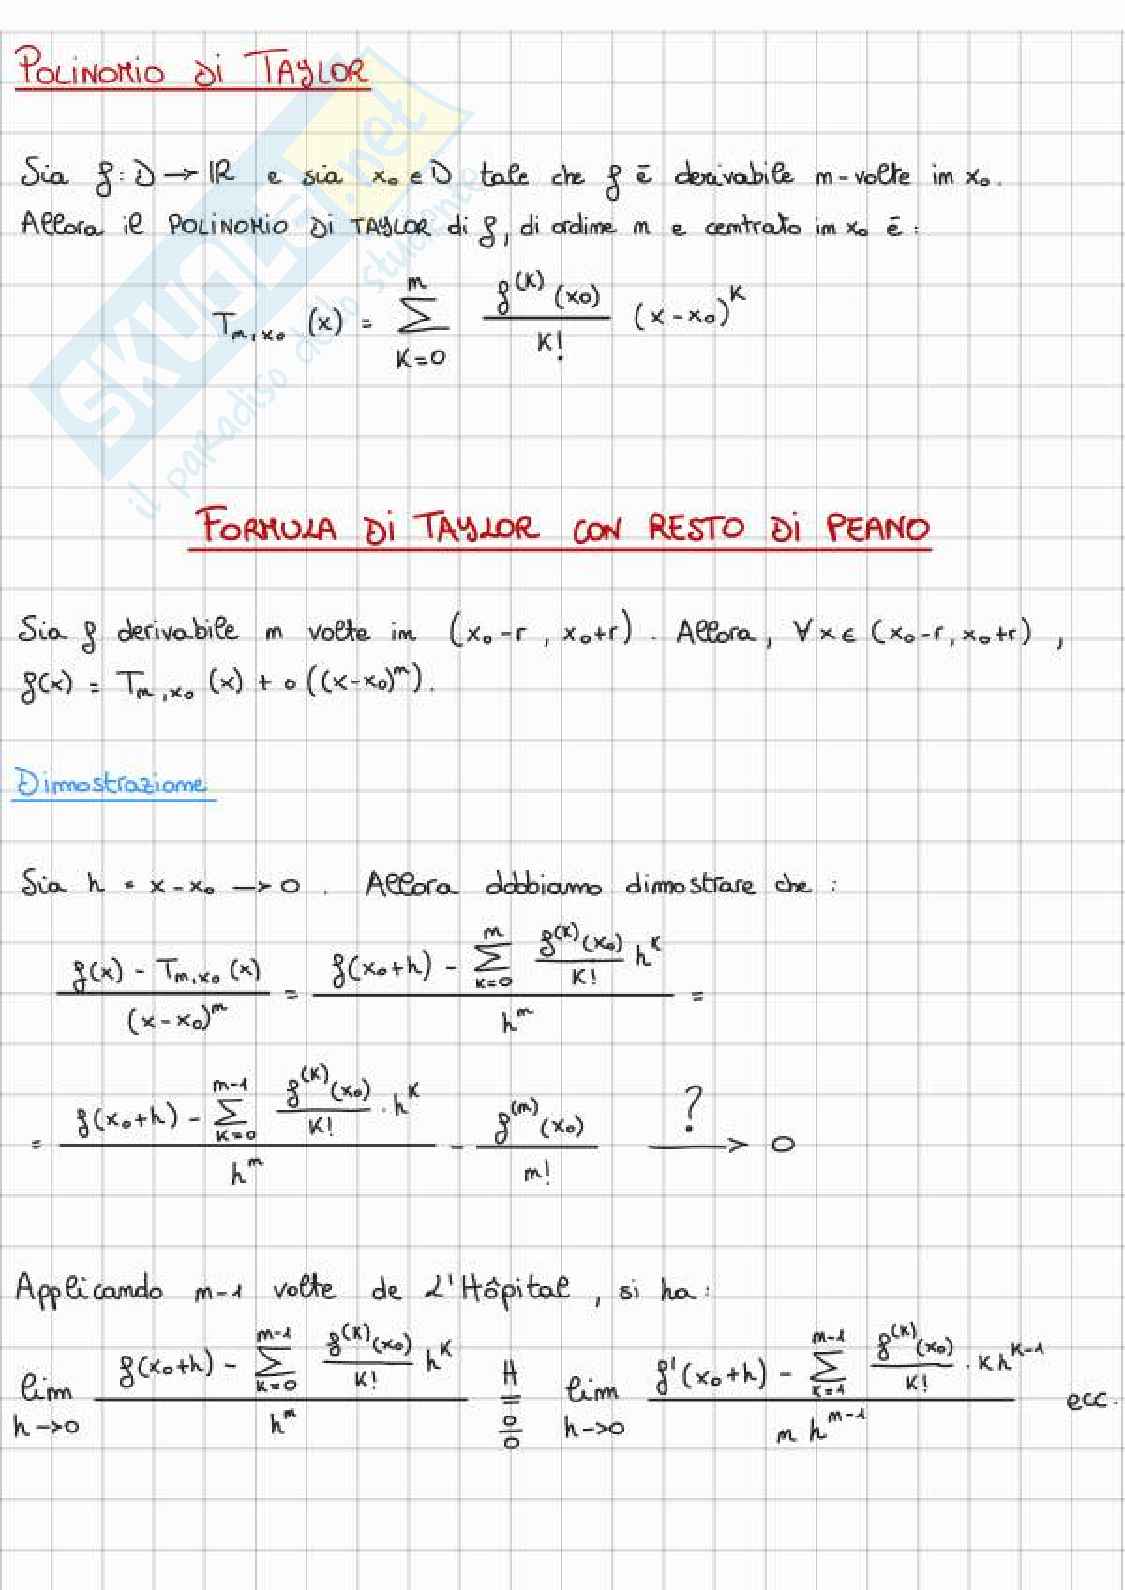 POLINOMIO DI TAYLOR
Sia f: D → ℝ e sia x₀ ∈ D tale che f è derivabile n-volte in x₀.
Allora il POLINOMIO DI TAYLOR di f, di ordine n e centrato in x₀ è:
T_{n,x₀}(x) = \sum_{K=0}^{n} \frac{f^{(K)}(x₀)}{K!} (x-x₀)^K
FORMULA DI TAYLOR CON RESTO DI PEANO
Sia f derivabile n volte in (x₀-r, x₀+r). Allora, ∀x ∈ (x₀-r, x₀+r),
f(x) = T_{n,x₀}(x) + o((x-x₀)^n).
Dimostrazione
Sia h = x-x₀ → 0. Allora dobbiamo dimostrare che:
\frac{f(x) - T_{n,x₀}(x)}{(x-x₀)^n} = \frac{f(x₀+h) - \sum_{K=0}^{n} \frac{f^{(K)}(x₀)}{K!} h^K}{h^n} =
= \frac{f(x₀+h) - \sum_{K=0}^{n-1} \frac{f^{(K)}(x₀)}{K!} · h^K}{h^n} - \frac{f^{(n)}(x₀)}{n!} \xrightarrow{?} 0
Applicando n-1 volte de L'Hôpital, si ha:
\lim_{h→0} \frac{f(x₀+h) - \sum_{K=0}^{n-1} \frac{f^{(K)}(x₀)}{K!} h^K}{h^n} \overset{H}{\underset{\frac{0}{0}}{=}} \lim_{h→0} \frac{f'(x₀+h) - \sum_{K=1}^{n-1} \frac{f^{(K)}(x₀)}{K!} · K h^{K-1}}{n h^{n-1}} ecc.
SKUOLA.net
il paradiso dello studente